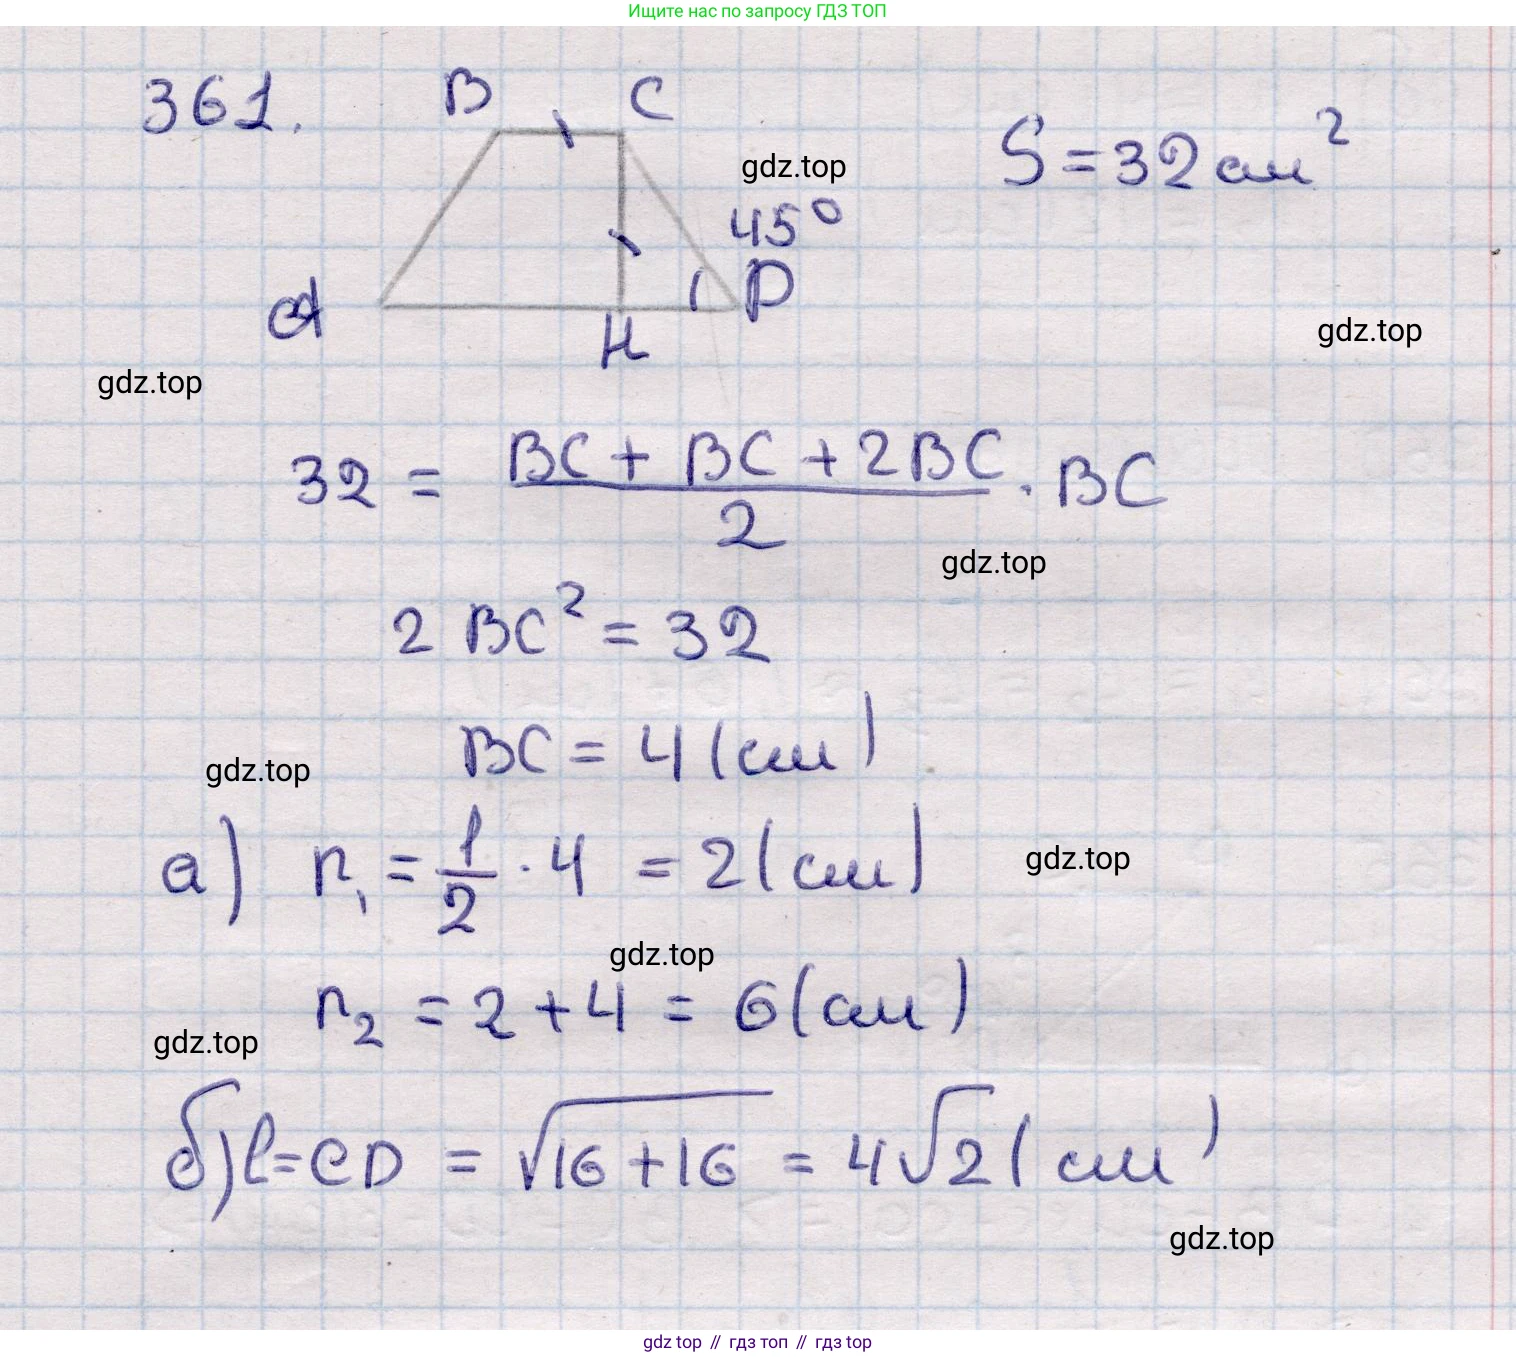 Ищите нас по запросу ГДЗ ТОП
361.
B C
S = 32 см²
gdz.top
45°
A
H
D
gdz.top
gdz.top
32 = (BC + BC + 2BC)/2 · BC
gdz.top
2 BC² = 32
BC = 4 (см)
gdz.top
а) r₁ = 1/2 · 4 = 2 (см)
gdz.top
gdz.top
r₂ = 2 + 4 = 6 (см)
gdz.top
б) l = CD = √(16 + 16) = 4√2 (см)
gdz.top
gdz top // гдз топ // гдз top